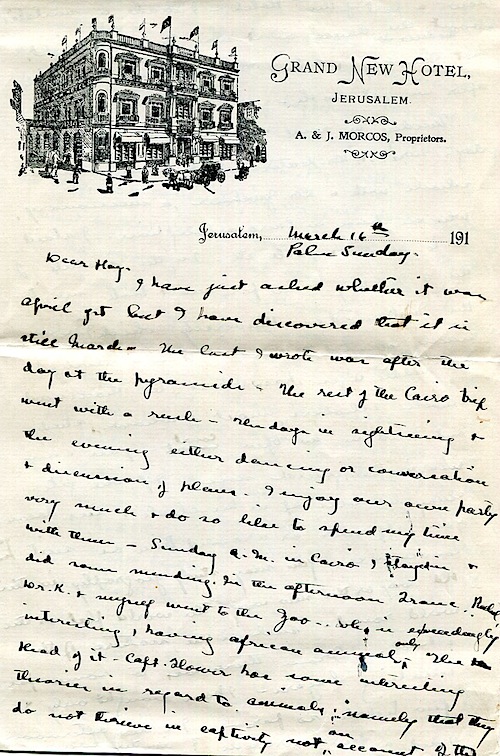 GRAND NEW HOTEL,
JERUSALEM.
A. & J. MORCOS, Proprietors.
Jerusalem, March 16th 191
Palm Sunday.
Dear Hay.
I have just asked whether it was
april yet but I have discovered that it is
still March - The last I wrote was after the
day at the pyramids - The rest of the Cairo trip
went with a rush - the days in sightseeing &
the evening either dancing or conversation
& discussion of plans. I enjoy our own party
very much & do so like to spend my time
with them - Sunday a.m. in Cairo I stayed in &
did some mending. In the afternoon
Mr. K. & myself went to the Zoo - is exceedingly
interesting, having african animals only The
Head of it - Capt. Flower has some interesting
theories in regard to animals, namely that they
do not thrive in captivity not on account of the